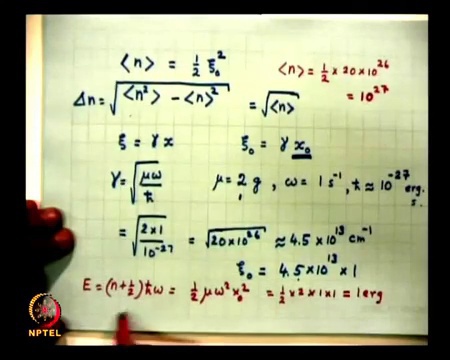 ⟨n⟩ = ½ ξ₀²
⟨n⟩ = ½ × 20 × 10²⁶
= 10²⁷
Δn = √(⟨n²⟩ − ⟨n⟩²) = √⟨n⟩
ξ = γ x    ξ₀ = γ x₀
γ = √(μω/ħ)    μ = 2 g, ω = 1 s⁻¹, ħ ≈ 10⁻²⁷ erg. s.
= √(2×1/10⁻²⁷) = √(20×10²⁶) ≈ 4.5 × 10¹³ cm⁻¹
ξ₀ = 4.5 × 10¹³ × 1
E = (n + ½) ħω = ½ μω² x₀² = ½ × 2 × 1 × 1 = 1 erg
NPTEL